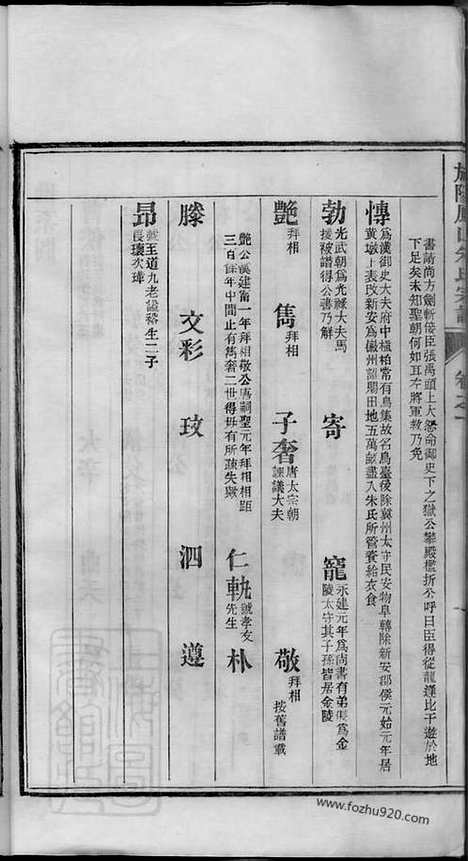 書請尚方劍斬佞臣張禹頭上大怒命御史下之獄公攀殿檻折公呼曰臣得從龍逢比干遊於地
下足矣未知聖朝何如耳左將軍救乃免
慱 為漢御史大夫府中檻柏常有烏集故名烏臺後除冀州太守民安物阜轉除新安郡侯元始元年居
黃墩上表改新安為徽州詔賜田地五萬畝盡入朱氏所管賚給衣食
勃 光武朝為光祿大夫馬
援被譖得公書乃解
寄
寵 永建元年為尚書有弟 為金
陵太守其子孫皆居金陵
艷 拜相
雋 拜相
子奢 唐太宗朝
諫議大夫
敬 拜相
按舊譜載
艷公漢建甯一年拜相敬公唐祠聖元年拜相相距
三百餘年中間止有雋奢二世得毋有所疏失歟
仁軌 號孝友
先生
朴
滕
文彩
玫
泗
遵
昂 至道九老謚裕生二子
長瓌次瑋
www.fozhu920.com